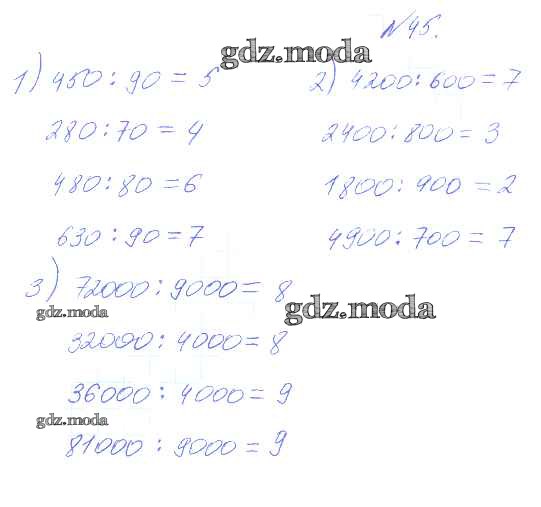 №45.
gdz.moda
1) 450 : 90 = 5
280 : 70 = 4
480 : 80 = 6
630 : 90 = 7
2) 4200 : 600 = 7
2400 : 800 = 3
1800 : 900 = 2
4900 : 700 = 7
3) 72000 : 9000 = 8
gdz.moda
gdz.moda
32000 : 4000 = 8
36000 : 4000 = 9
gdz.moda
81000 : 9000 = 9